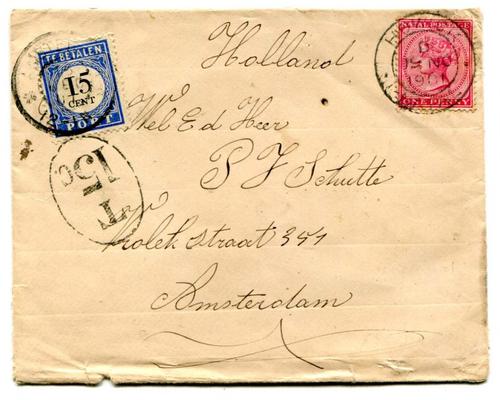 Holland
TE BETALEN
15
CENT
PORT
NATAL POSTAGE
ONE PENNY
Wel Ed Heer
P J Schutte
T
15c
straat 391
Amsterdam